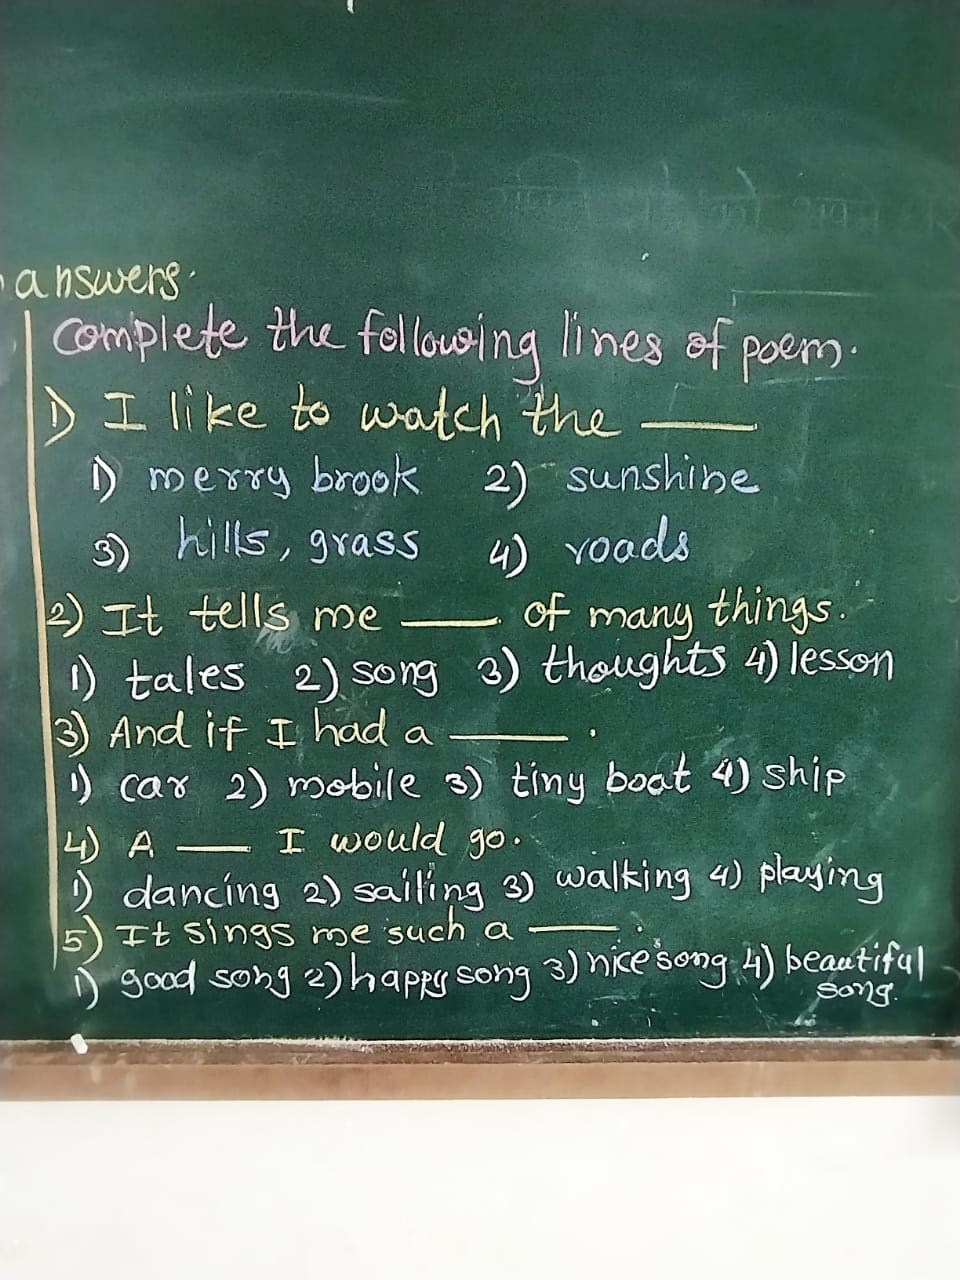 answers.
Complete the following lines of poem.
1) I like to watch the ____
1) merry brook 2) sunshine
3) hills, grass 4) roads
2) It tells me ____ of many things.
1) tales 2) song 3) thoughts 4) lesson
3) And if I had a ____.
1) car 2) mobile 3) tiny boat 4) ship
4) A ____ I would go.
1) dancing 2) sailing 3) walking 4) playing
5) It sings me such a ____.
1) good song 2) happy song 3) nice song 4) beautiful
song.